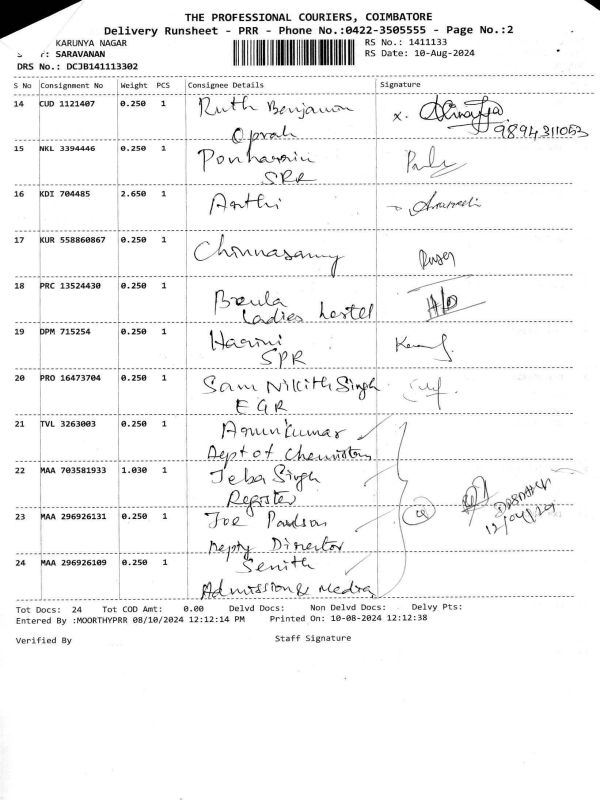 THE PROFESSIONAL COURIERS, COIMBATORE
Delivery Runsheet - PRR - Phone No.:0422-3505555 - Page No.:2
KARUNYA NAGAR
RS No.: 1411133
: SARAVANAN
RS Date: 10-Aug-2024
DRS No.: DCJB141113302
S No Consignment No Weight PCS Consignee Details Signature
14 CUD 1121407 0.250 1 Ruth Benjamon
Oprah
9894311053
15 NKL 3394446 0.250 1
SRR
16 KDI 704485 2.650 1 Arthi
17 KUR 558860867 0.250 1 Chinnasamy
18 PRC 13524430 0.250 1 Breula
Ladies hostel
19 DPM 715254 0.250 1 Harini
SPR
20 PRO 16473704 0.250 1 Sam Nikith Singh
EGR
21 TVL 3263003 0.250 1 Arunkumar
Dept of Chemistry
22 MAA 703581933 1.030 1 Jeba Singh
Register
23 MAA 296926131 0.250 1 Joe Paulson
Depty Director
24 MAA 296926109 0.250 1 Senith
Admission & Media
Tot Docs: 24 Tot COD Amt: 0.00 Delvd Docs: Non Delvd Docs: Delvy Pts:
Entered By :MOORTHYPRR 08/10/2024 12:12:14 PM Printed On: 10-08-2024 12:12:38
Verified By Staff Signature